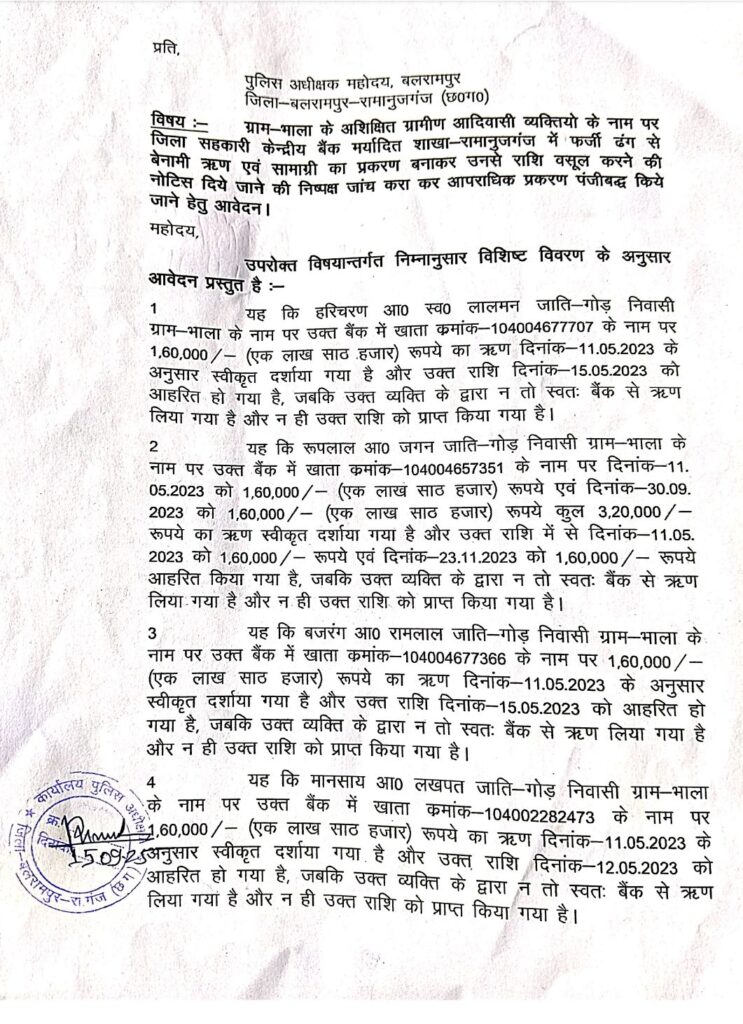 प्रति,
पुलिस अधीक्षक महोदय, बलरामपुर
जिला–बलरामपुर–रामानुजगंज (छ0ग0)
विषय :– ग्राम–भाला के अशिक्षित ग्रामीण आदिवासी व्यक्तियो के नाम पर
जिला सहकारी केन्द्रीय बैंक मर्यादित शाखा–रामानुजगंज में फर्जी ढंग से
बेनामी ऋण एवं सामाग्री का प्रकरण बनाकर उनसे राशि वसूल करने की
नोटिस दिये जाने की निष्पक्ष जांच करा कर आपराधिक प्रकरण पंजीबद्ध किये
जाने हेतु आवेदन।
महोदय,
उपरोक्त विषयान्तर्गत निम्नानुसार विशिष्ट विवरण के अनुसार
आवेदन प्रस्तुत है :–
1 यह कि हरिचरण आ0 स्व0 लालमन जाति–गोड़ निवासी
ग्राम–भाला के नाम पर उक्त बैंक में खाता क्रमांक–104004677707 के नाम पर
1,60,000/– (एक लाख साठ हजार) रूपये का ऋण दिनांक–11.05.2023 के
अनुसार स्वीकृत दर्शाया गया है और उक्त राशि दिनांक–15.05.2023 को
आहरित हो गया है, जबकि उक्त व्यक्ति के द्वारा न तो स्वतः बैंक से ऋण
लिया गया है और न ही उक्त राशि को प्राप्त किया गया है।
2 यह कि रूपलाल आ0 जगन जाति–गोड़ निवासी ग्राम–भाला के
नाम पर उक्त बैंक में खाता क्रमांक–104004657351 के नाम पर दिनांक–11.
05.2023 को 1,60,000/– (एक लाख साठ हजार) रूपये एवं दिनांक–30.09.
2023 को 1,60,000/– (एक लाख साठ हजार) रूपये कुल 3,20,000/–
रूपये का ऋण स्वीकृत दर्शाया गया है और उक्त राशि में से दिनांक–11.05.
2023 को 1,60,000/– रूपये एवं दिनांक–23.11.2023 को 1,60,000/– रूपये
आहरित किया गया है, जबकि उक्त व्यक्ति के द्वारा न तो स्वतः बैंक से ऋण
लिया गया है और न ही उक्त राशि को प्राप्त किया गया है।
3 यह कि बजरंग आ0 रामलाल जाति–गोड़ निवासी ग्राम–भाला के
नाम पर उक्त बैंक में खाता क्रमांक–104004677366 के नाम पर 1,60,000/–
(एक लाख साठ हजार) रूपये का ऋण दिनांक–11.05.2023 के अनुसार
स्वीकृत दर्शाया गया है और उक्त राशि दिनांक–15.05.2023 को आहरित हो
गया है, जबकि उक्त व्यक्ति के द्वारा न तो स्वतः बैंक से ऋण लिया गया है
और न ही उक्त राशि को प्राप्त किया गया है।
4 यह कि मानसाय आ0 लखपत जाति–गोड़ निवासी ग्राम–भाला
के नाम पर उक्त बैंक में खाता क्रमांक–104002282473 के नाम पर
1,60,000/– (एक लाख साठ हजार) रूपये का ऋण दिनांक–11.05.2023 के
अनुसार स्वीकृत दर्शाया गया है और उक्त राशि दिनांक–12.05.2023 को
आहरित हो गया है, जबकि उक्त व्यक्ति के द्वारा न तो स्वतः बैंक से ऋण
लिया गया है और न ही उक्त राशि को प्राप्त किया गया है।
कार्यालय पुलिस अधीक्षक
क्र.
दिनांक 15.09.25
जिला-बलरामपुर-रा.गंज (छ.ग.)